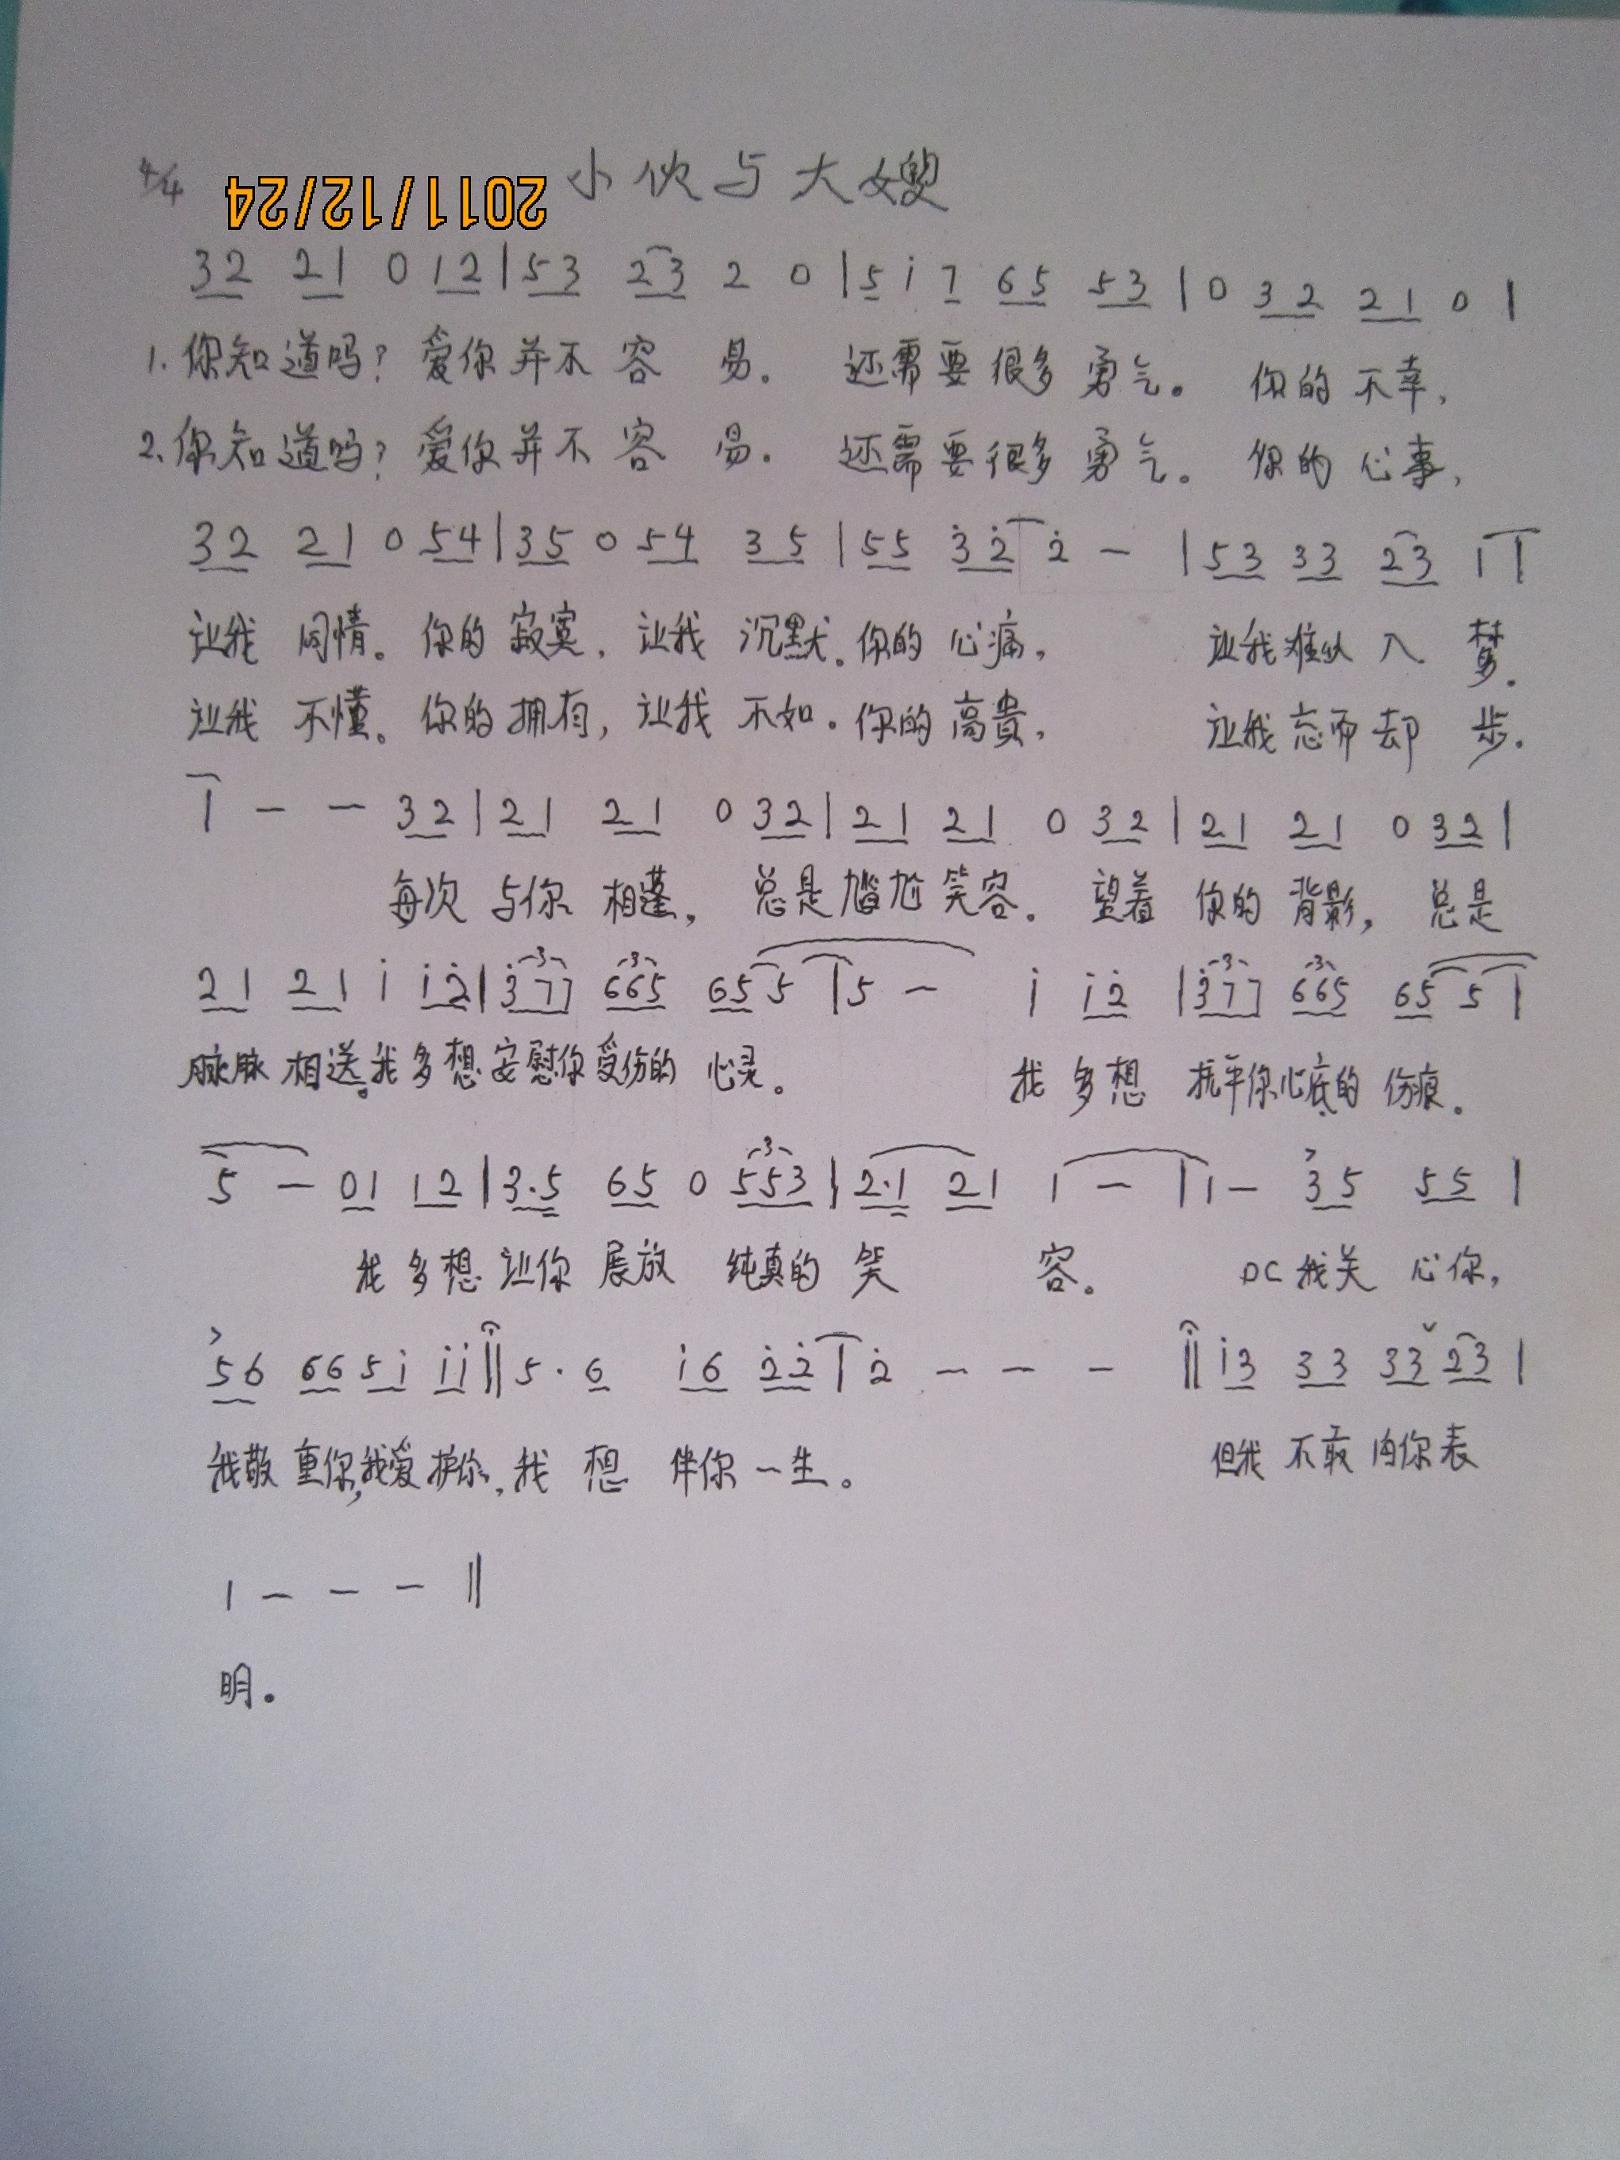 4/4 2011/12/24 小伙与大嫂
32 21 0 12 | 53 23 2 0 | 5 i 7 65 53 | 0 32 21 0 |
1. 你知道吗? 爱你并不容易。 还需要很多勇气。 你的不幸,
2、你知道吗? 爱你并不容易. 还需要很多勇气。 你的心事,
32 21 0 54 | 35 0 54 35 | 55 3̇2̇ 2̇ — | 53 33 23 1 |
让我 同情。 你的寂寞, 让我 沉默. 你的心痛, 让我难以入梦.
让我 不懂。 你的拥有, 让我 不如. 你的高贵, 让我忘而却步.
1 — — 32 | 21 21 0 32 | 21 21 0 32 | 21 21 0 32 |
每次 与你 相逢, 总是尴尬笑容. 望着 你的 背影, 总是
21 21 i i2̇ | 3̇77 665 65 5 | 5 — i i2̇ | 3̇77 665 65 5 |
脉脉 相送。我多想安慰你受伤的 心灵。 我多想 抚平你心底的 伤痕.
5 — 01 12 | 3·5 65 0 553 | 2·1 21 1 — | 1 — 35 55 |
我多想 让你 展放 纯真的 笑 容。 DC 我关 心你,
56 66 5i ii || 5 · 6 i6 2̇2̇ | 2̇ — — — || i3 33 33 23 |
我敬 重你,我爱护你, 我 想 伴你一生。 但我 不敢 向你表
1 — — — ||
明。